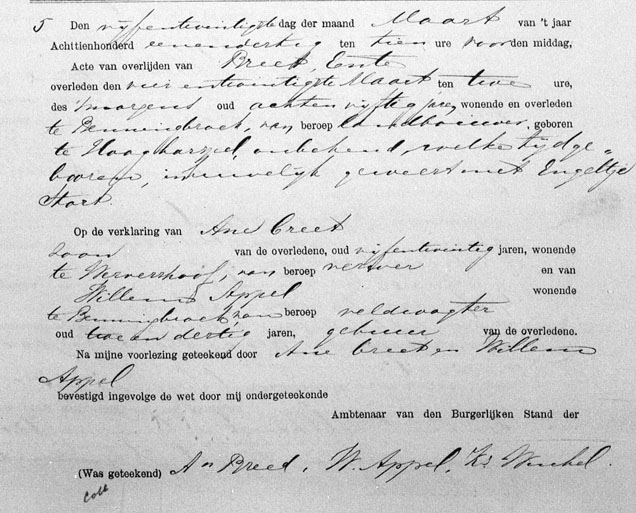 5 Den vijfentwintigste dag der maand Maart van 't jaar
Achttienhonderd eenendertig ten tien ure voor den middag,
Acte van overlijden van Breet, Ente
overleden den vier entwintigste Maart ten twee ure,
des 'smorgens oud achtenvijftig wonende en overleden
te Benningbroek, van beroep landbouwer, geboren
te Hoogkarspel, onbekend, welke tijd ge=
booren, in huwelijk geweest met Engeltje
Stort.
Op de verklaring van Ane Breet
zoon van de overledene, oud vijfentwintig jaren, wonende
te Wervershoof, van beroep verwer en van
Willem Appel wonende
te Benningbroek, van beroep veldwagter
oud twee en dertig jaren, gebuur van de overledene.
Na mijne voorlezing geteekend door Ane Breet en Willem
Appel
bevestigd ingevolge de wet door mij ondergeteekende
Ambtenaar van den Burgerlijken Stand der
(Was geteekend) An Breed, W. Appel, Ks
Coll